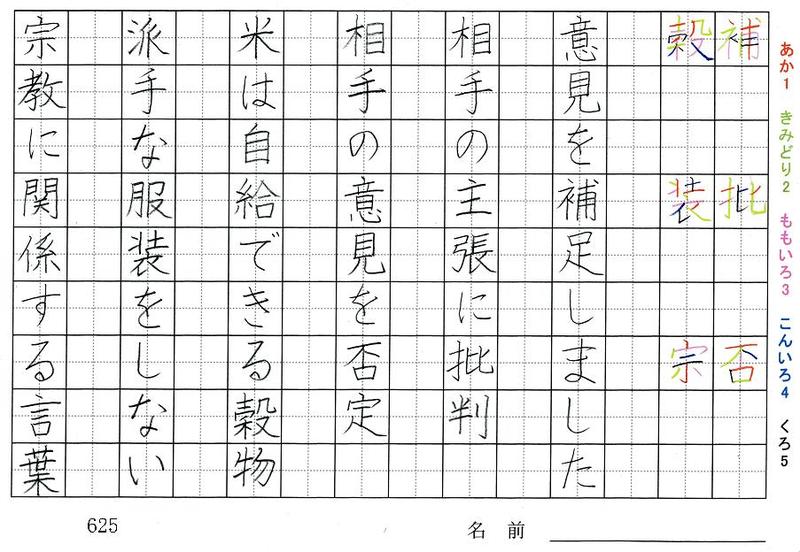 あか1 きみどり2 ももいろ3 こんいろ4 くろ5
補 批 否
穀 装 宗
意見を補足しました
相手の主張に批判
相手の意見を否定
米は自給できる穀物
派手な服装をしない
宗教に関係する言葉
名前
625